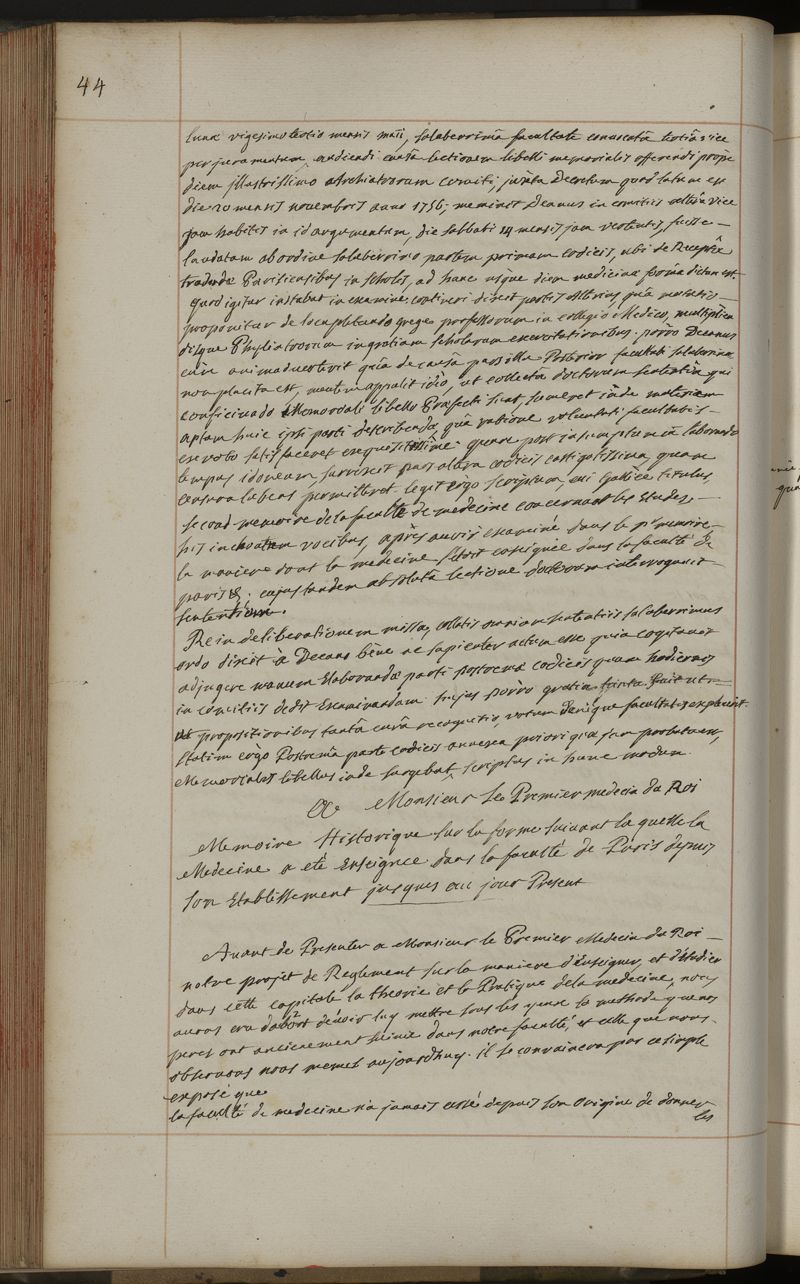 44
lunæ vigesimo tertio mensis maii, saluberrimâ facultate convocatâ tertiâ vice
per juramentum, audiendi causâ lectionem libelli memorialis offerendi prope
diem illustrissimo archiatrorum comiti; juxta Decretum quod latum est
die 20 mensis novembris anno 1756; meminit Decanus in comitiis alterâ vice
jam habitis in id argumentum, die sabbati 14 mensis jam vertentis, fuisse
laudatam ab ordine saluberrimo partem primam codicis, ubi de Receptâ
tradendæ Parisiensibus in scholis, ad hanc usque diem medicinæ formâ dictum est.
quod igitur instabat in examine, contineri dixit partis alterius quâ
proponitur de locupletando grege professorum in collegio Medico, multiplican
disque Phyliatrorum in gratiam scholarum exercitationibus. porro Decanus
cùm animadverterit quâ de causâ Posterior facultati saluberrimæ
non placita est, mentem appulit ideò, ut collectâ doctorum sententiâ qui
conficiendo Memoriali libello Præfecti sint, sumeret inde materiem
aptam huic ipsi parti describendæ, quâ ratione voluntati facultatis
ex voto satisfaceret exquisitissimè. quare post insumptum in laborando
tempus idoneum, surrexit pars altera codicis castigatissima, quam
censura labens permitteret. legit ergo scriptum, cui Gallicè titulus,
second memoire de la faculté de medecine concernant les Etudes,
his inchoatum vocibus, après avoir examiné dans le pr memoire
la maniere dont la medecine s'etoit enseignée dans la faculté de
paris &; cujus tandem absolutâ lectione doctorum interrogavit
sententiam.
Re in deliberationem missa, collatis omnium sententiis saluberrimus
ordo dixit à Decano bène ac sapienter actum esse quia cogitavit
adjugere manum Elaborandæ parti postremæ codicis quam hodiernis
in comitiis dedit Examinandam. hujus porrò gratia facta fuit
propositionibus tantâ curâ recognitio, votum denique facultatis expleverit.
statim ergo Postremâ parte codicis annexâ priori quæ jam probata erat,
Memorialis libellus inde surgebat scriptus in hunc modum.
A Monsieur Le Premier medecin du Roi
Memoire Historique sur la forme suivant laquelle la
Medecine a eté Enseignée dans la faculté de Paris depuis
son Etablissement jusques au jour Present
Avant de Presenter a Monsieur le Premier Medecin du Roi
notre projet de Reglement sur la maniere d'Enseigner, et d'étudier
dans cette capitale la theorie et la Pratique de la medecine, nous
avons cru d'abord devoir luy mettre sous les yeux la methode que nos
peres ont anciennement suivie dans notre faculté, et celle que nous
observons nous memes aujourdhuy. il se convaincra par ce simple
exposé que
la faculté de medecine n'a jamais cessé depuis son Origine de donner
les